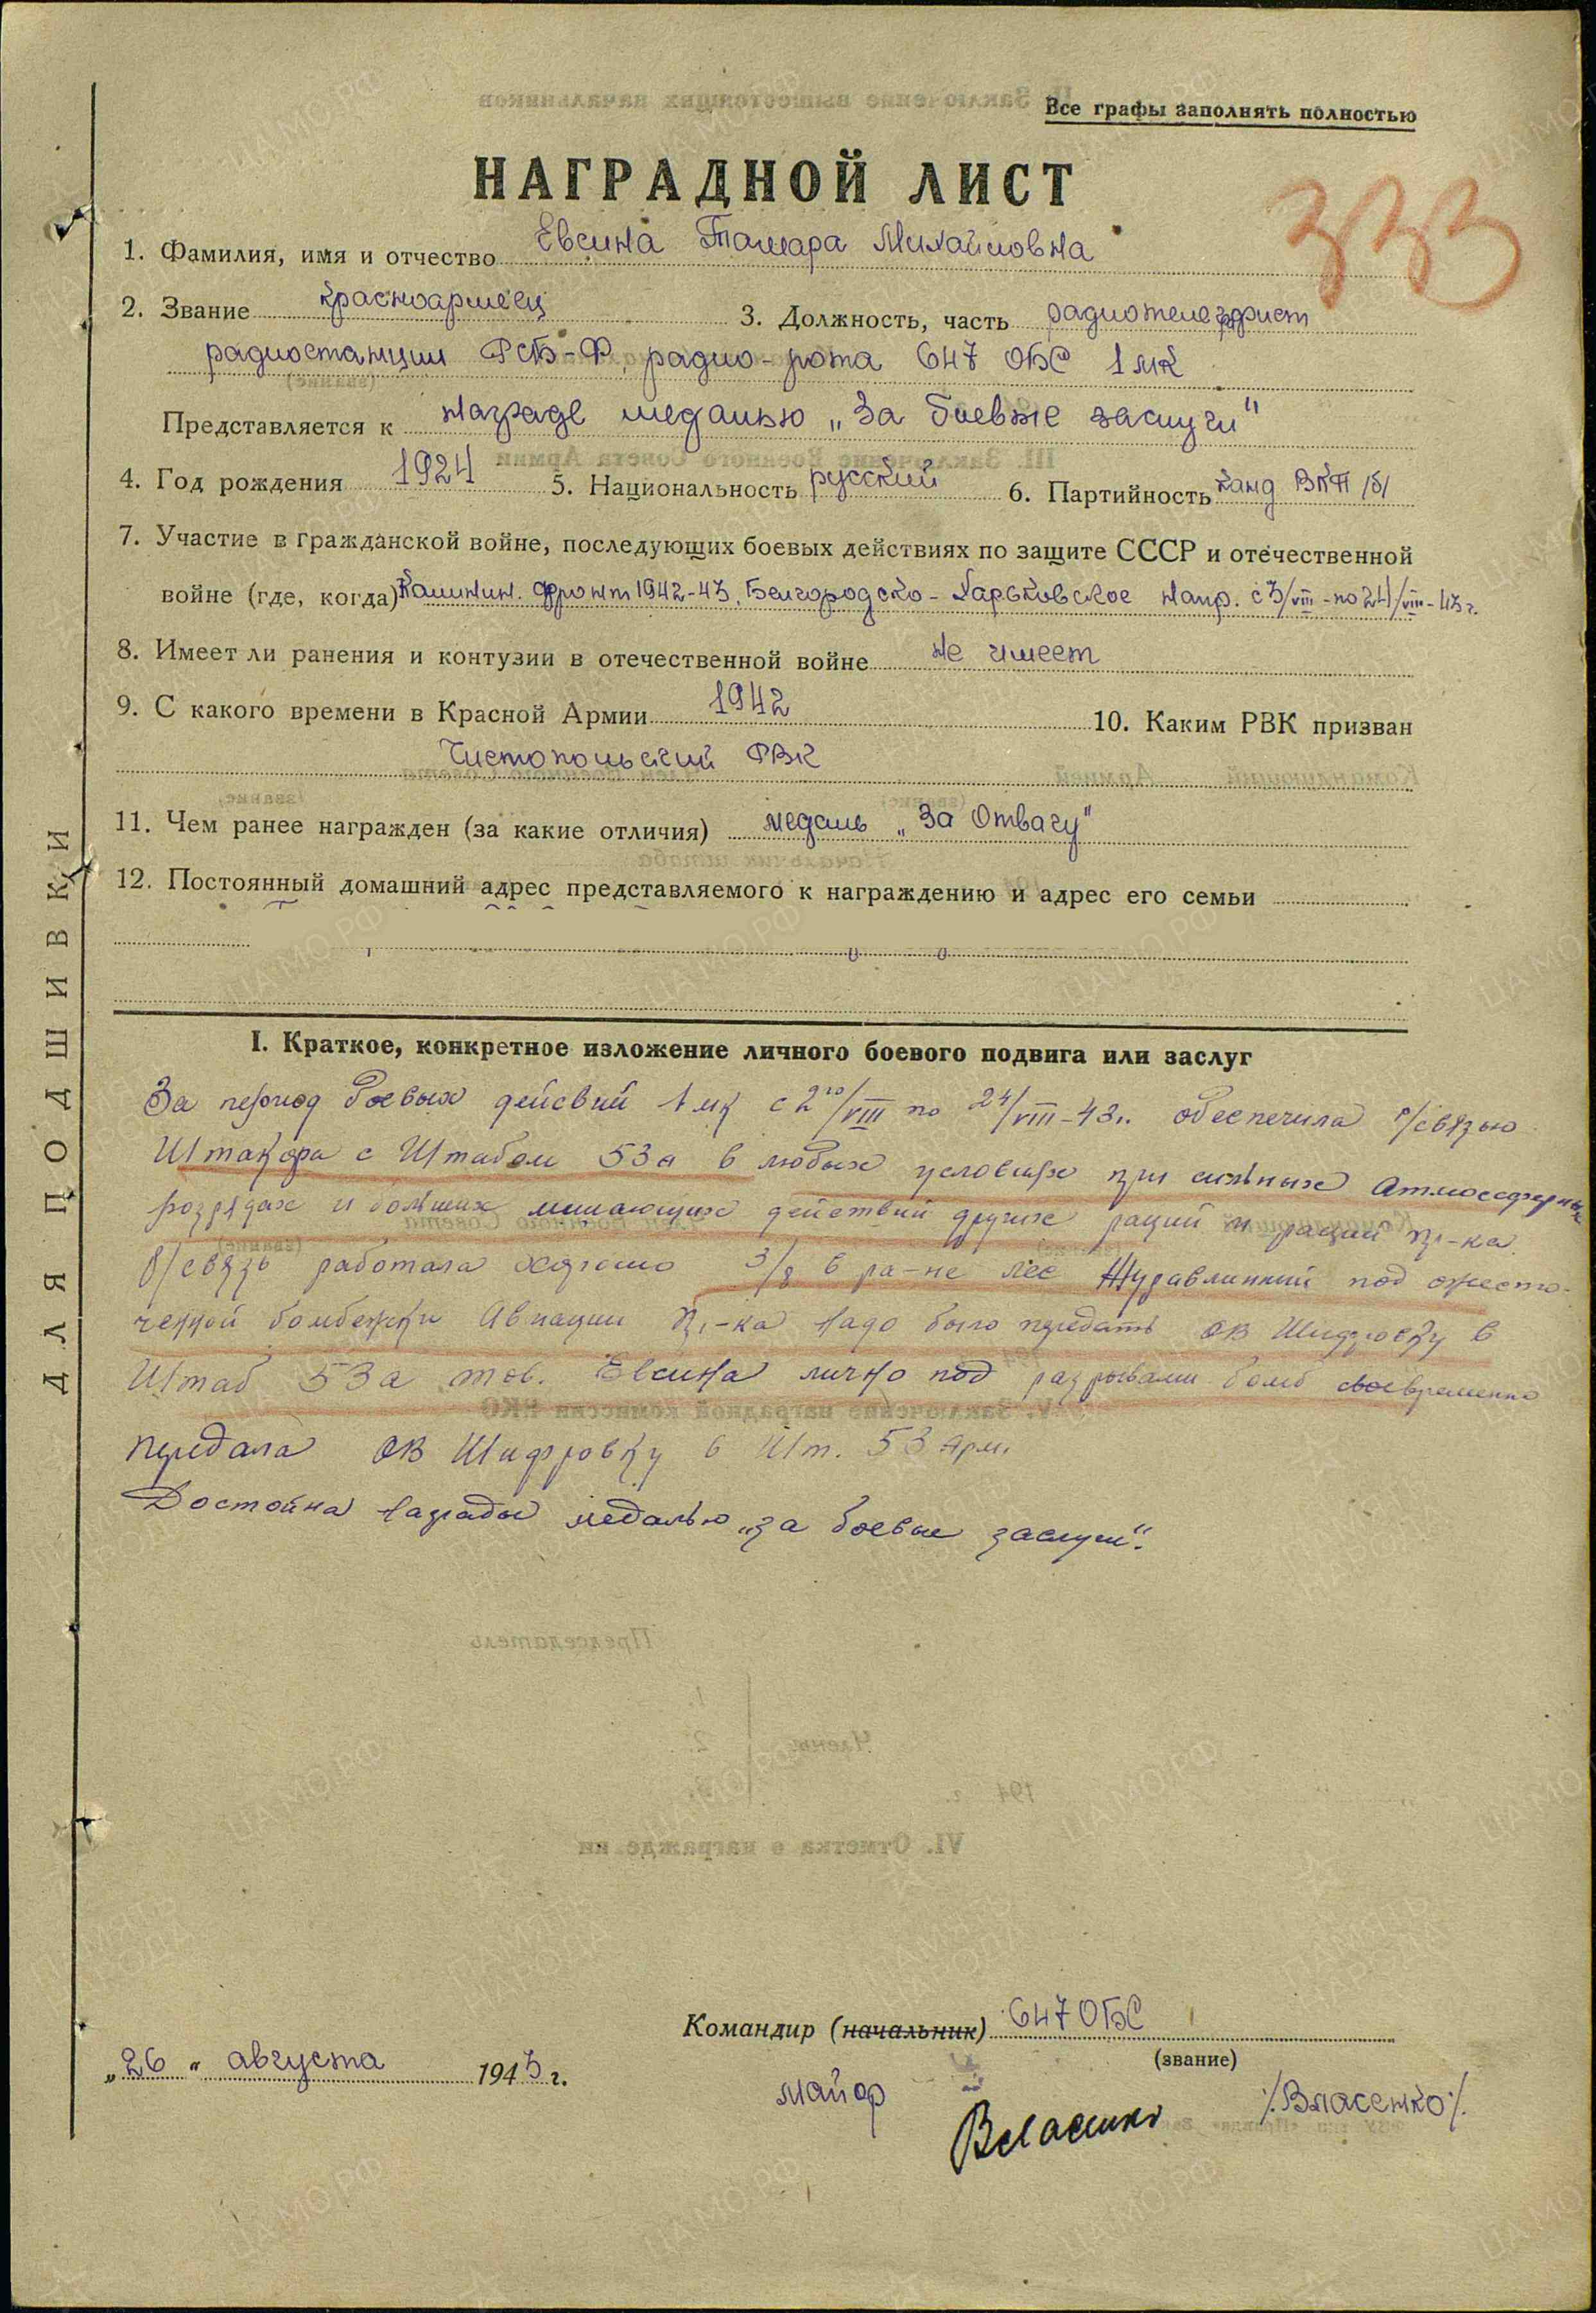 Все графы заполнять полностью
НАГРАДНОЙ ЛИСТ
333
1. Фамилия, имя и отчество Евсина Тамара Михайловна
2. Звание Красноармеец 3. Должность, часть радиотелеграфист
радиостанции РСБ-Ф, радио-рота 647 ОБС 1 МК
Представляется к награде медалью „За боевые заслуги"
4. Год рождения 1924 5. Национальность русский 6. Партийность Канд ВКП /б/
7. Участие в гражданской войне, последующих боевых действиях по защите СССР и отечественной
войне (где, когда) Калинин. фронт 1942-43, Белгородско-Харьковское напр. с 3/VIII-по 24/VIII-43 г.
8. Имеет ли ранения и контузии в отечественной войне не имеет
9. С какого времени в Красной Армии 1942 10. Каким РВК призван
Чистопольский РВК
11. Чем ранее награжден (за какие отличия) медаль „За Отвагу"
12. Постоянный домашний адрес представляемого к награждению и адрес его семьи
I. Краткое, конкретное изложение личного боевого подвига или заслуг
За период боевых дейсвий 1 мк с 2го/VIII по 24/VIII-43г. обеспечила р/связью
Штакора с Штабом 53а в любых условиях при сильных Атмосферных
розрядах и больших мишающих действий других раций и раций пр-ка.
Р/связь работала хорошо 3/8 в ра-не лес Журавлинный под ожесто-
ченной бомбежки Авиации пр-ка надо было передать ОВ Шифровку в
Штаб 53а тов. Евсина лично под разрывами бомб своевременно
передала ОВ Шифровку в Шт. 53 Арм.
Достойна награды медалью „за боевые заслуги".
Командир (начальник) 647 ОБС
(звание)
„26" августа 1943 г.
майор
Власенко /Власенко/.
ДЛЯ ПОДШИВКИ